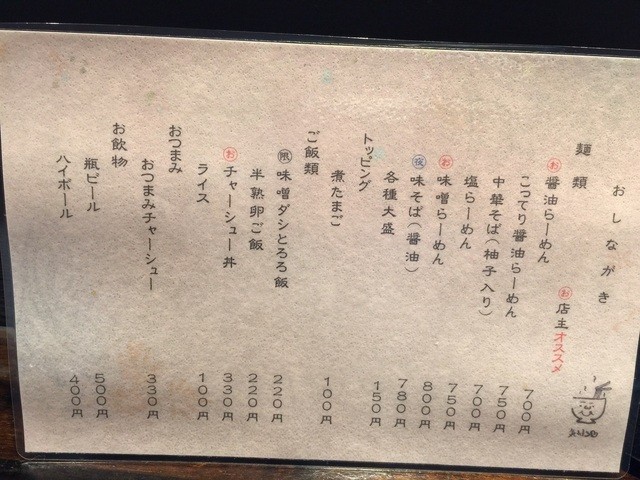 おしながき
お 店主オススメ
麺類
お 醤油らーめん 700円
こってり醤油らーめん 750円
中華そば（柚子入り） 700円
塩らーめん 750円
お 味噌らーめん 800円
夜 味そば（醤油） 780円
各種大盛 150円
トッピング
煮たまご 100円
ご飯類
限 味噌ダシとろろ飯 220円
半熟卵ご飯 220円
お チャーシュー丼 330円
ライス 100円
おつまみ
おつまみチャーシュー 330円
お飲物
瓶ビール 500円
ハイボール 400円